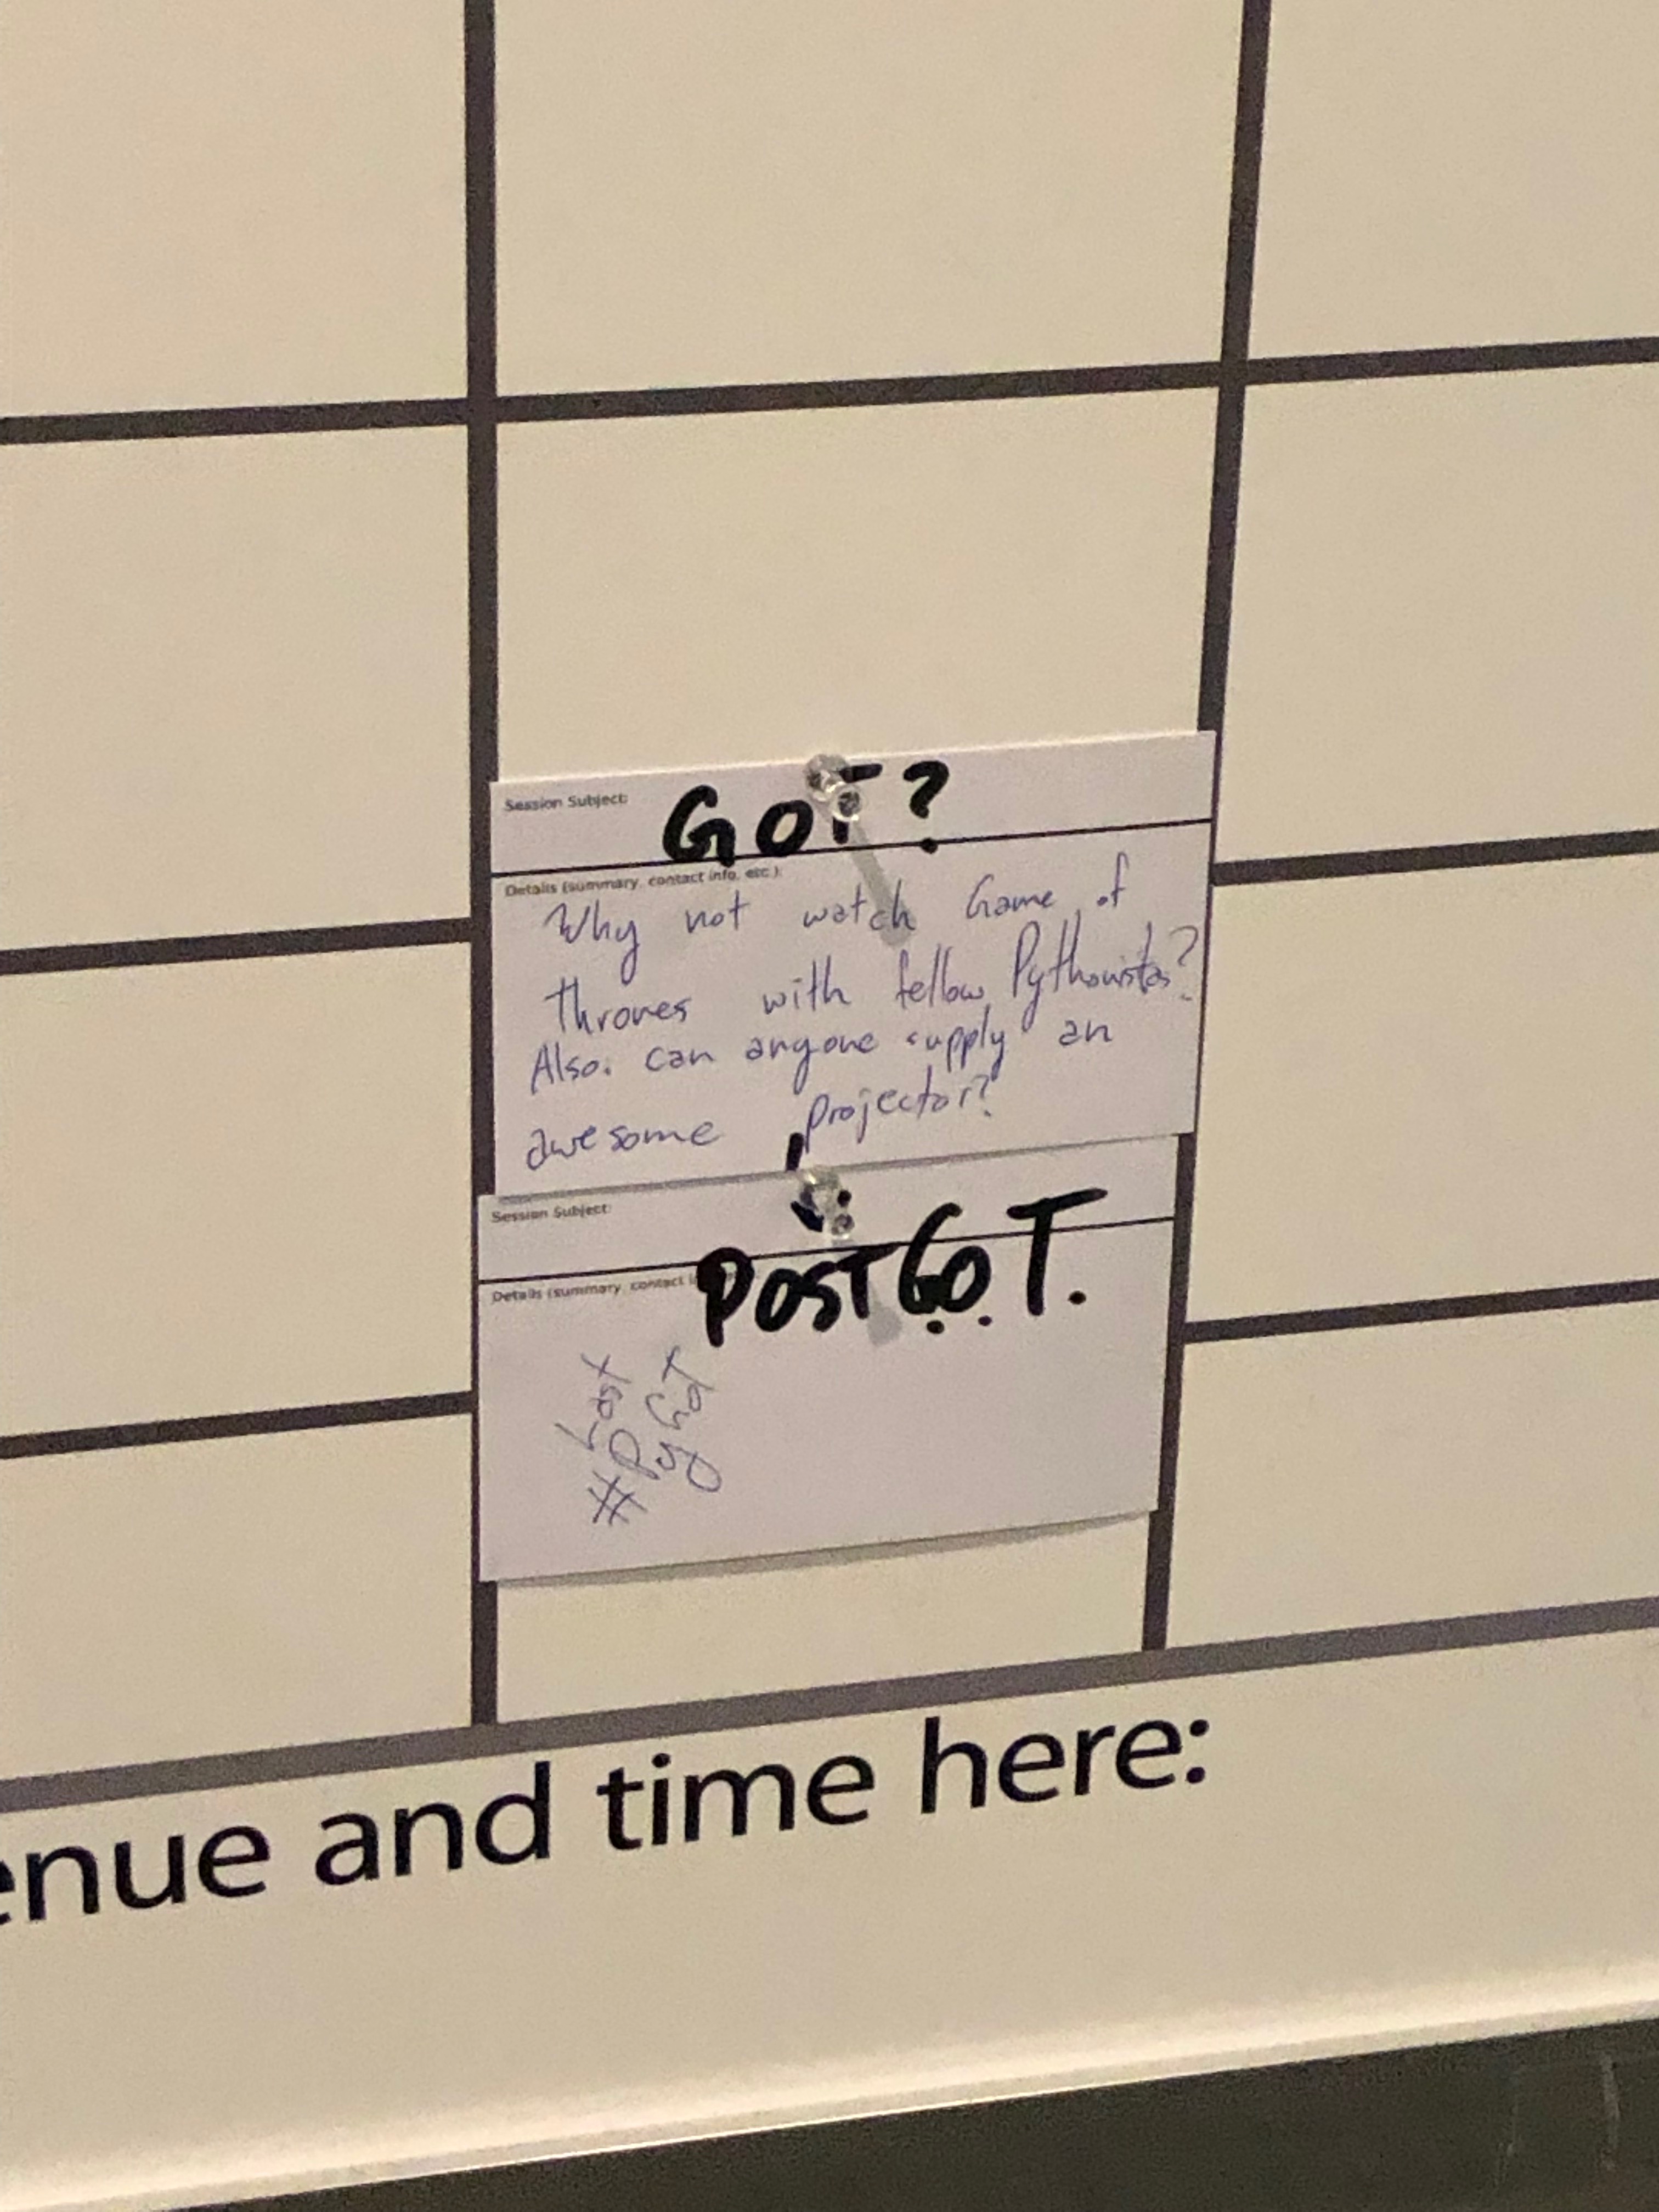 Session Subject:
GOT?
Details (summary, contact info, etc.):
Why not watch Game of
Thrones with fellow Pythonistas?
Also. can anyone supply an
awesome projector?
Session Subject:
Details (summary, contact
POST G.O.T.
#Post
PyGoT
enue and time here: